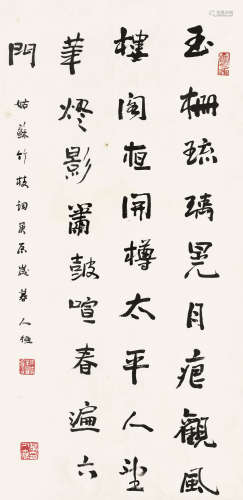 玉柵琉璃晃月痕觀風
樓閣夜開樽太平人望
華燈影簫鼓喧春遍六
門
姑蘇竹枝詞 歲暮